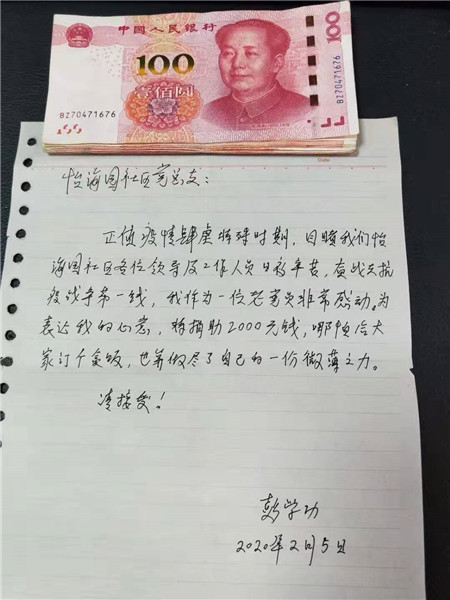 中国人民银行
100
100
壹佰圆
BZ70471676
BZ70471676
100
Date
怡海园社区党总支：
正值疫情肆虐特殊时期，目睹我们怡
海园社区各位领导及工作人员日夜辛苦，奋战在抗
疫战争第一线，我作为一位老党员非常感动。为
表达我的心意，特捐助2000元钱，哪怕给大
家订个盒饭，也算做尽了自己的一份微薄之力。
请接受！
彭学功
2020年2月5日